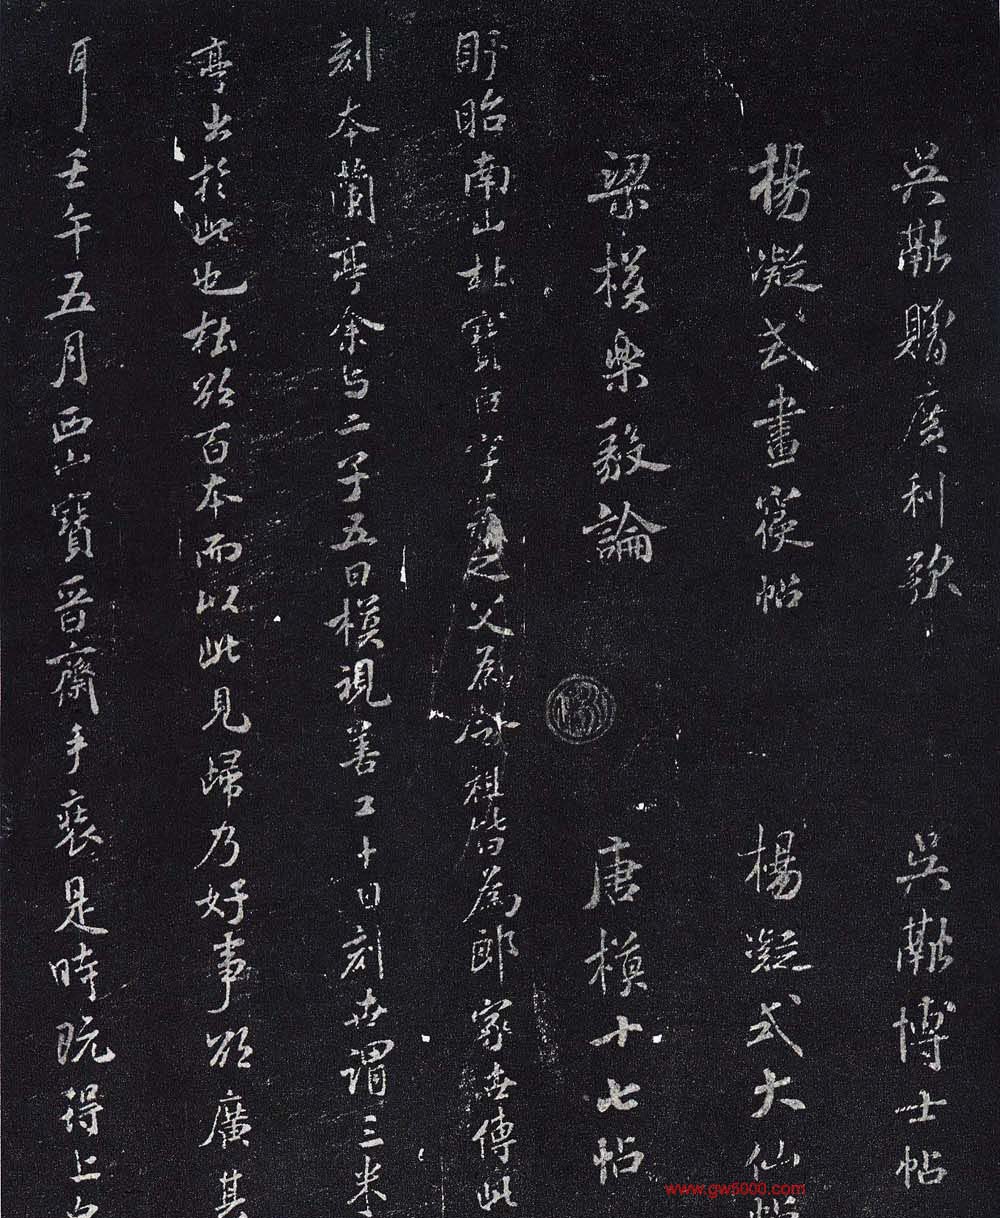 吳融贈廣利歌 吳融博士帖
楊凝式畫寢帖 楊凝式大仙帖
梁模樂毅論 唐模十七帖
盱眙南山杜寶臣字之父為祖皆為郎家世傳此
刻本蘭亭余与二子五日模視善工十日刻世謂三米蘭
亭出於此也杜欲百本而以此見歸乃好事欲廣其
耳壬午五月西山寶晉齋手裝是時既得上
www.gw5000.com